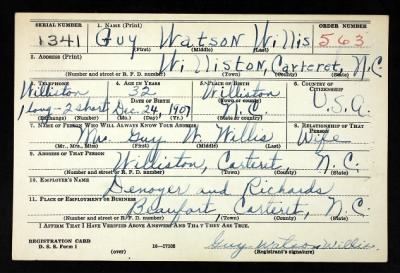 SERIAL NUMBER 1. NAME (Print) ORDER NUMBER
1341 Guy Watson Willis 563
(First) (Middle) (Last)
2. ADDRESS (Print)
Williston, Carteret, N.C.
(Number and street or R. F. D. number) (Town) (County) (State)
3. TELEPHONE 4. AGE IN YEARS 5. PLACE OF BIRTH 6. COUNTRY OF CITIZENSHIP
Williston 32 Williston
DATE OF BIRTH (Town or county) U.S.A.
1 long-2 short Dec. 24, 1907 N.C.
(Exchange) (Number) (Mo.) (Day) (Yr.) (State or country)
7. NAME OF PERSON WHO WILL ALWAYS KNOW YOUR ADDRESS 8. RELATIONSHIP OF THAT PERSON
Mrs. Guy W. Willis Wife
(Mr., Mrs., Miss) (First) (Middle) (Last)
9. ADDRESS OF THAT PERSON
Williston, Carteret, N.C.
(Number and street or R. F. D. number) (Town) (County) (State)
10. EMPLOYER'S NAME
Denoyer and Richards
11. PLACE OF EMPLOYMENT OR BUSINESS
Beaufort, Carteret, N.C.
(Number and street or R. F. D. number) (Town) (County) (State)
I AFFIRM THAT I HAVE VERIFIED ABOVE ANSWERS AND THAT THEY ARE TRUE.
REGISTRATION CARD
D. S. S. Form 1 (over) 16-17105 Guy Watson Willis
Registrant's signature)